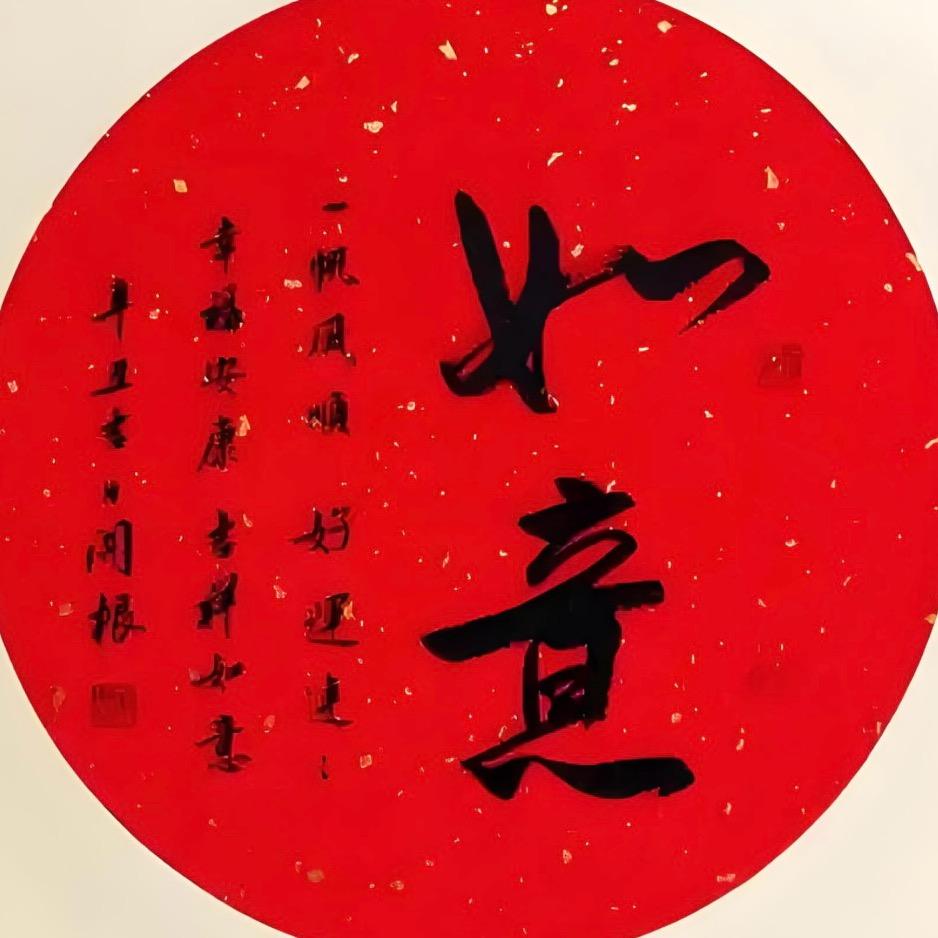 如意
一帆風順 好運連〻
幸福安康 吉祥如意
辛丑吉日開根